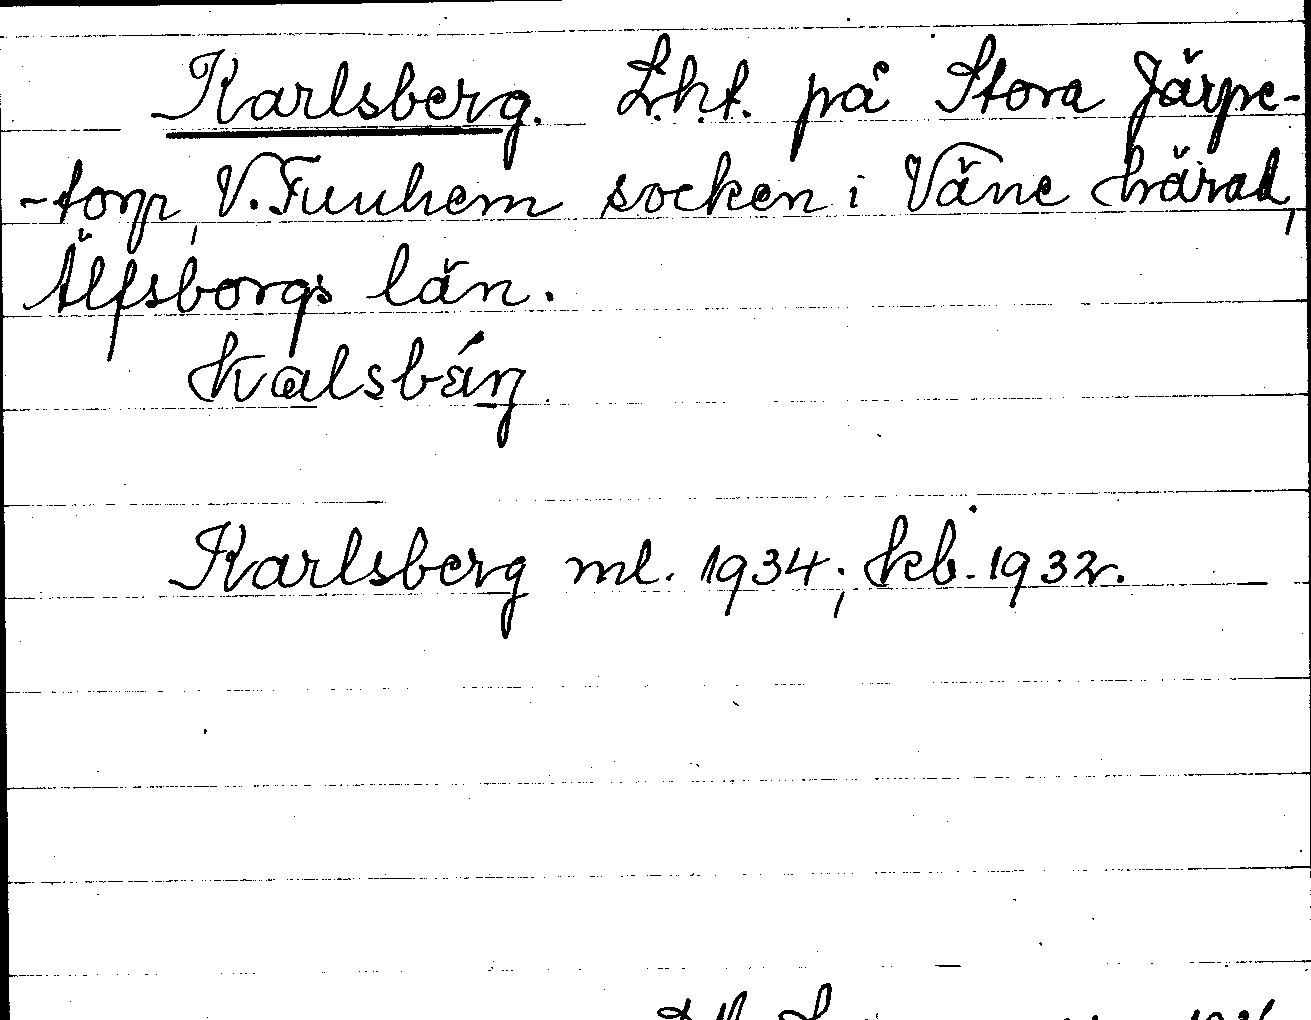 Karlsberg. L.h.t. på Stora Järpe-
-torp, V. Tunhem socken i Väne härad,
Älfsborgs län.
kalsbárj
Karlsberg ml. 1934; kb. 1932.